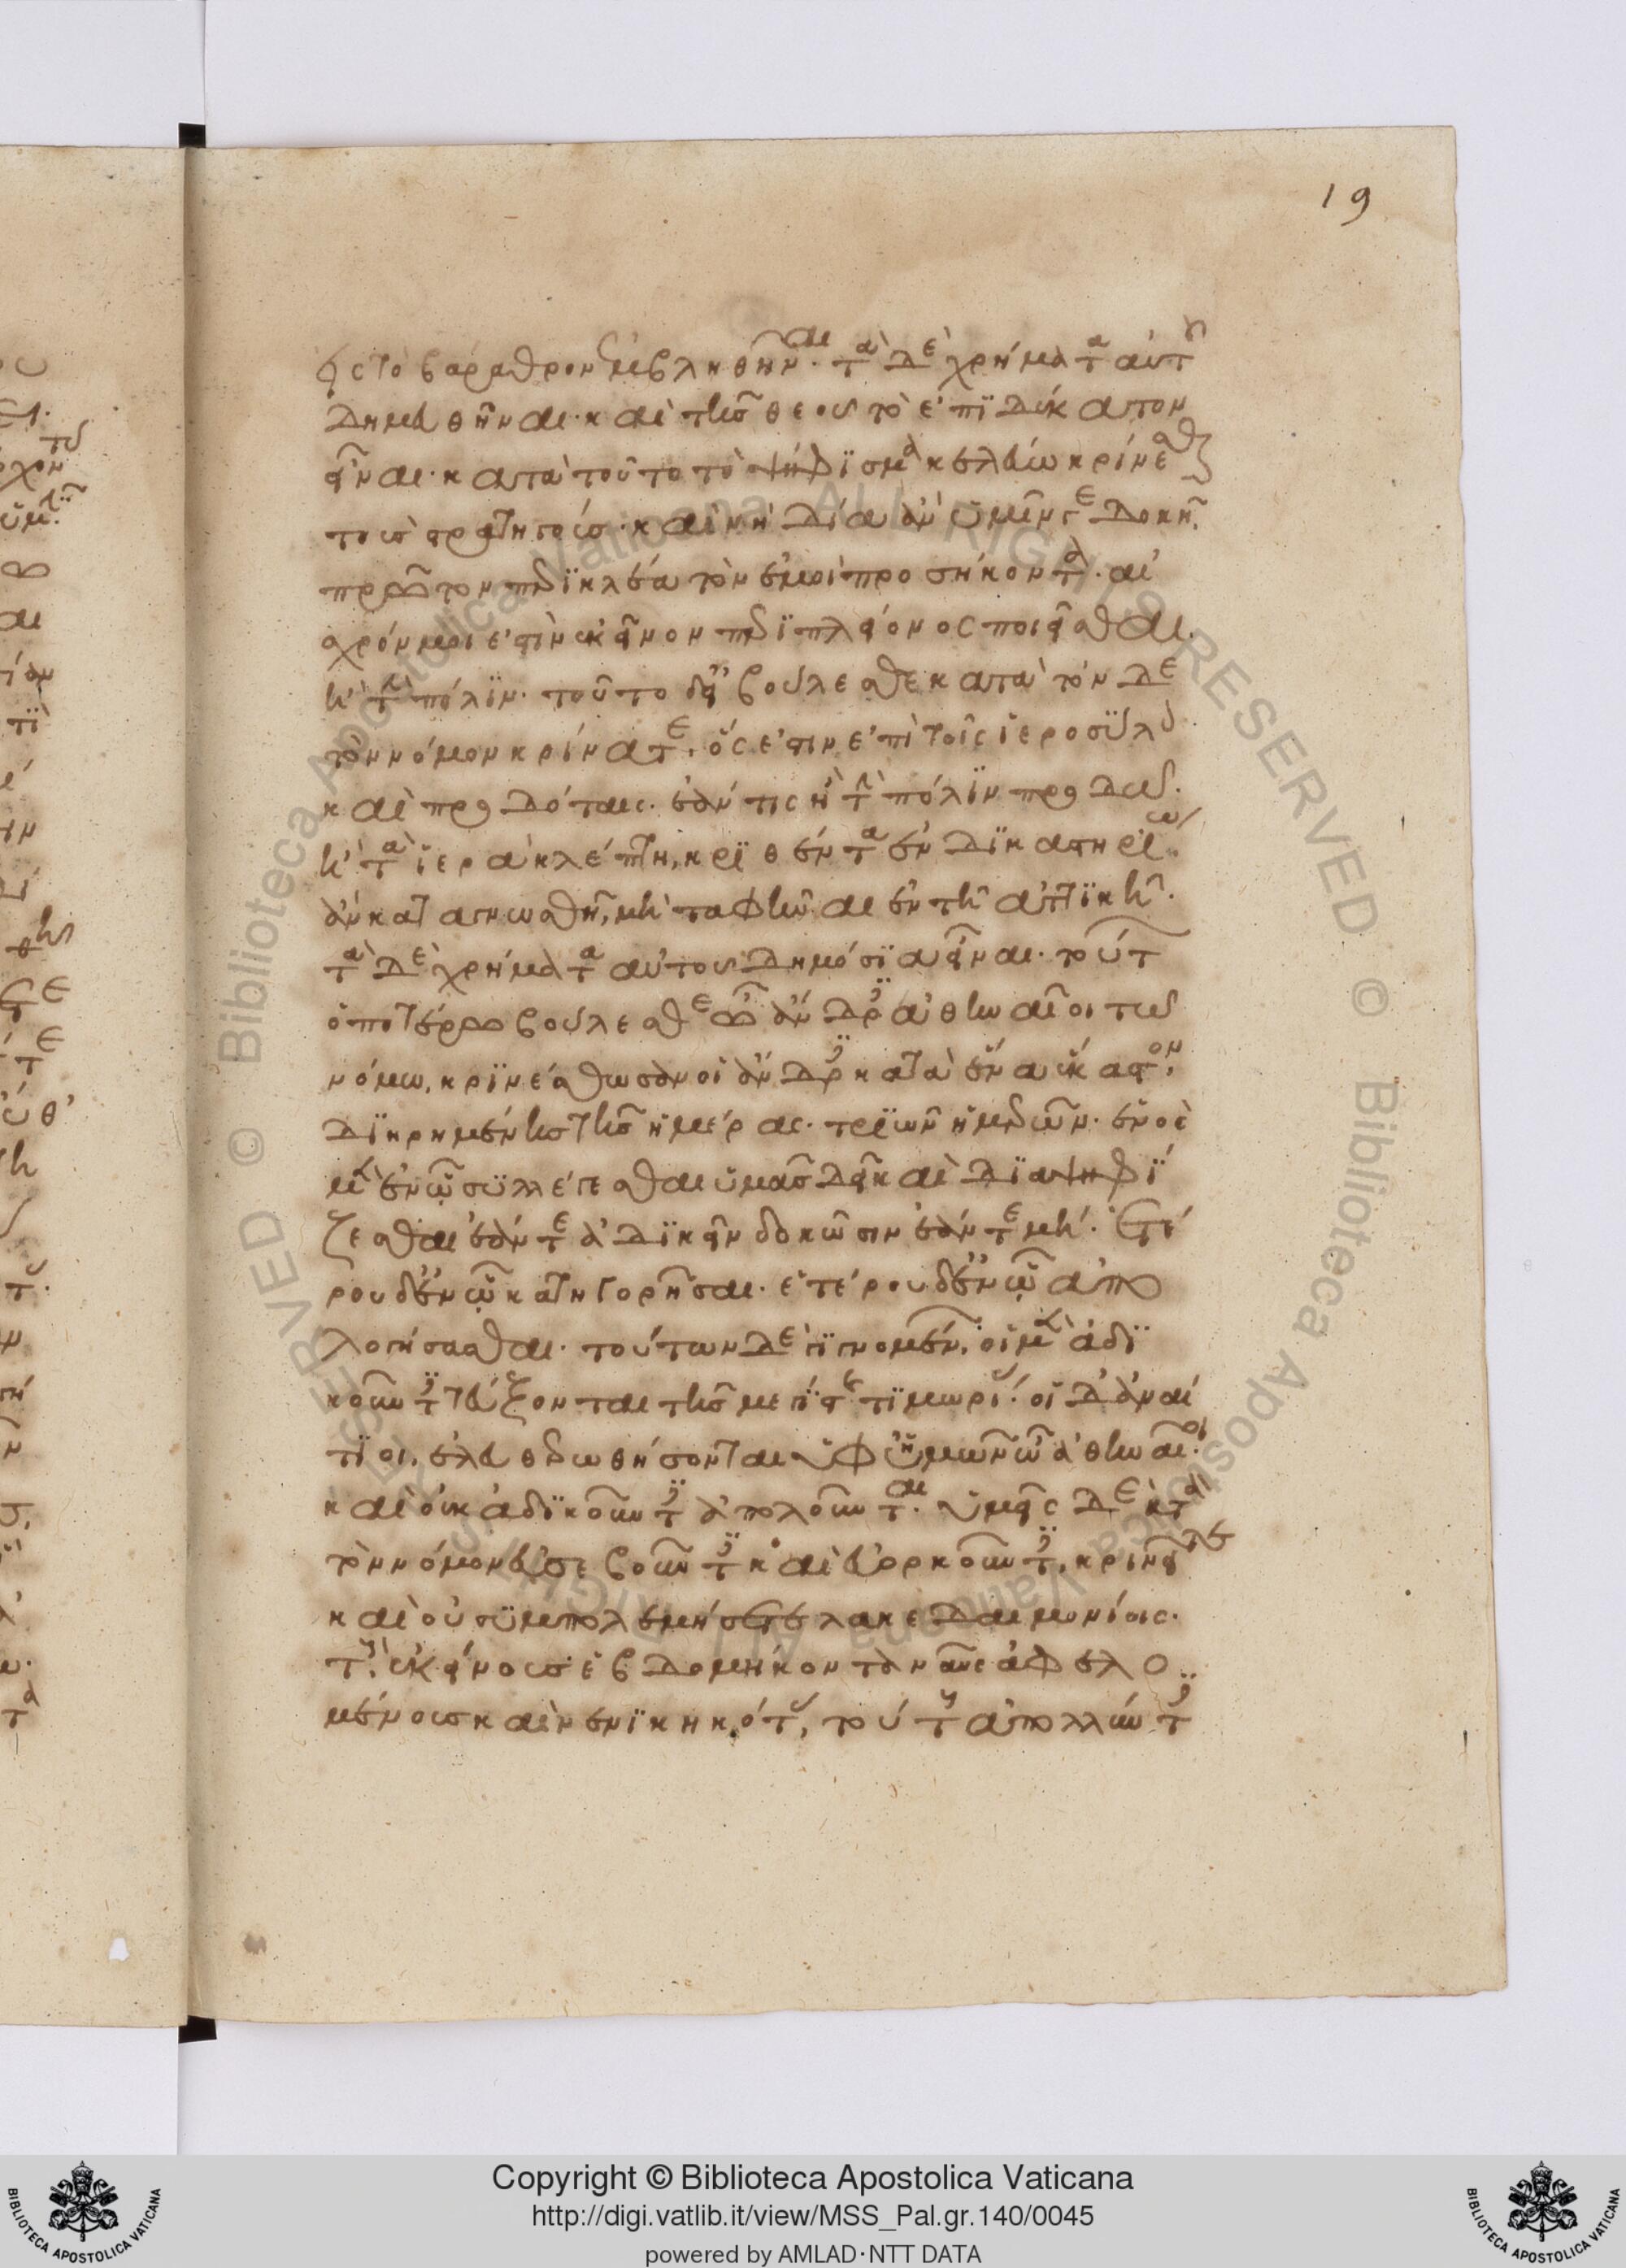 19
εἰς τὸ βάραθρον ἐμβληθῆναι. τὰ δὲ χρήματα αὐτοῦ
δημευθῆναι. καὶ τῆς θεοῦ τὸ ἐπιδέκατον
εἶναι. κατὰ τοῦτο τὸ ψήφισμα κελεύω κρίνεσθαι
τοὺς στρατηγούς. καὶ νὴ Δία ἂν ὑμῖν γε δοκῇ,
πρῶτον Περικλέα τὸν ἐμοὶ προσήκοντα. αἰ
σχρόν μοι ἐστὶν ἐκεῖνον περὶ πλείονος ποιεῖσθαι.
ἢ τὴν πόλιν. τοῦτο δ' εἰ βούλεσθε κατὰ τόν δε
τὸν νόμον κρίνατε, ὅς ἐστιν ἐπὶ τοῖς ἱεροσύλοις
καὶ προδόταις. ἐάν τις ἢ τὴν πόλιν προδιδῷ.
ἢ τὰ ἱερὰ κλέπτῃ, κριθέντα ἐν δικαστηρίῳ.
ἂν καταγνωσθῇ, μὴ ταφῆναι ἐν τῇ Ἀττικῇ.
τὰ δὲ χρήματα αὐτοῦ δημόσια εἶναι. τούτων
ὁποτέρῳ βούλεσθε ὦ ἄνδρες Ἀθηναῖοι τῷ
νόμῳ, κρινέσθωσαν οἱ ἄνδρες κατὰ ἕνα ἕκαστον,
διῃρημένης τῆς ἡμέρας. τριῶν ἡμερῶν. ἑνὸς
μὲν ἐν ᾧ συλλέγεσθαι ὑμᾶς δεῖ καὶ διαψηφί
ζεσθαι ἐάν τε ἀδικεῖν δοκῶσιν ἐάν τε μή. ἑτέ
ρου δ' ἐν ᾧ κατηγορῆσαι. ἑτέρου δ' ἐν ᾧ ἀπο
λογήσασθαι. τούτων δὲ γιγνομένων, οἱ μὲν ἀδι
κοῦντες τεύξονται τῆς μεγίστης τιμωρίας. οἱ δ' ἀναί
τιοι, ἐλευθερωθήσονται ὑφ' ὑμῶν ὦ Ἀθηναῖοι.
καὶ οὐκ ἀδικοῦντες ἀπολοῦνται. ὑμεῖς δὲ κατὰ
τὸν νόμον εὐσεβοῦντες καὶ εὐορκοῦντες, κρινεῖτε
καὶ οὐ συμπολεμήσετε Λακεδαιμονίοις.
τοὺς ἐκείνους ἑβδομήκοντα ναῦς ἀφελο
μένους καὶ νενικηκότας, τούτους ἀπολλύντες
Copyright © Biblioteca Apostolica Vaticana
http://digi.vatlib.it/view/MSS_Pal.gr.140/0045
powered by AMLAD·NTT DATA